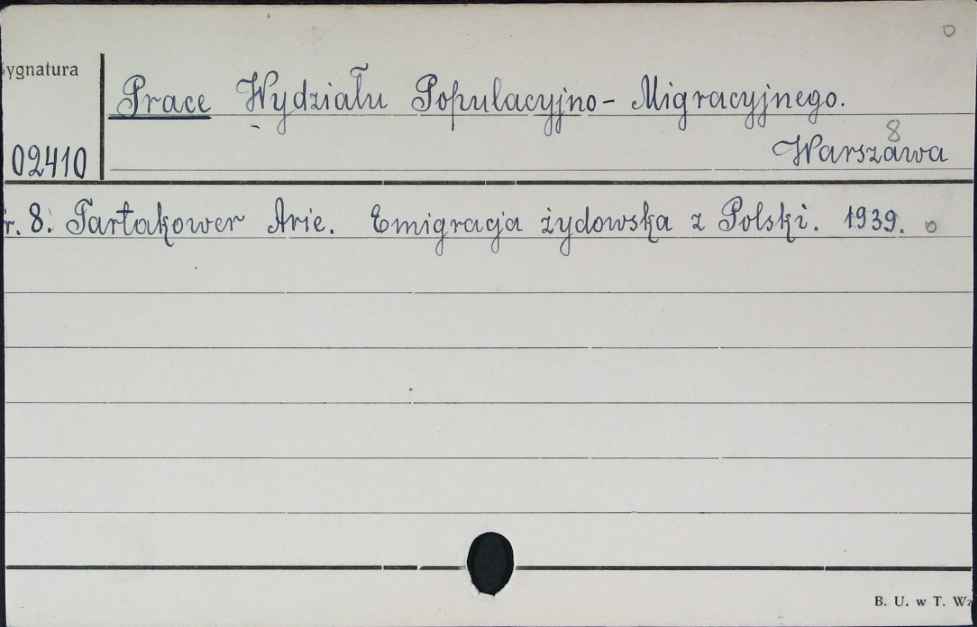 ygnatura
Prace Wydziału Populacyjno-Migracyjnego.
8
02410 Warszawa
r. 8. Tartakower Arie. Emigracja żydowska z Polski. 1939.
B. U. w T. Wz